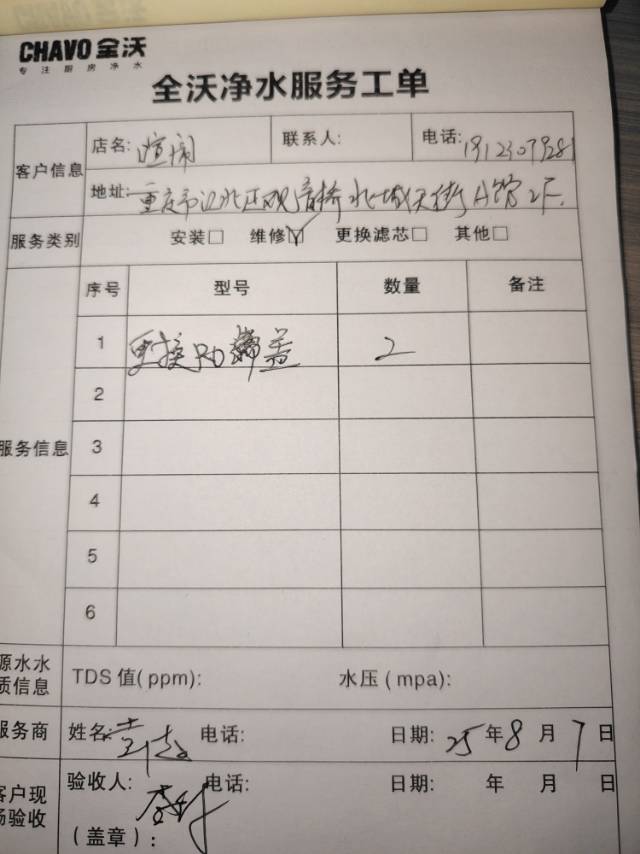 CHAVO 全沃
专注厨房净水
全沃净水服务工单
客户信息 店名: 喧闹 联系人: 电话:
地址: 重庆市江北区观音桥北城天街A馆2F
服务类别 安装□ 维修☑ 更换滤芯□ 其他□
服务信息 序号 型号 数量 备注
1 更换RO 端盖 2
2
3
4
5
6
源水水质信息 TDS 值(ppm): 水压(mpa):
服务商 姓名: 电话: 日期: 25年8月7日
客户现场验收 验收人: 电话: 日期: 年 月 日
(盖章):